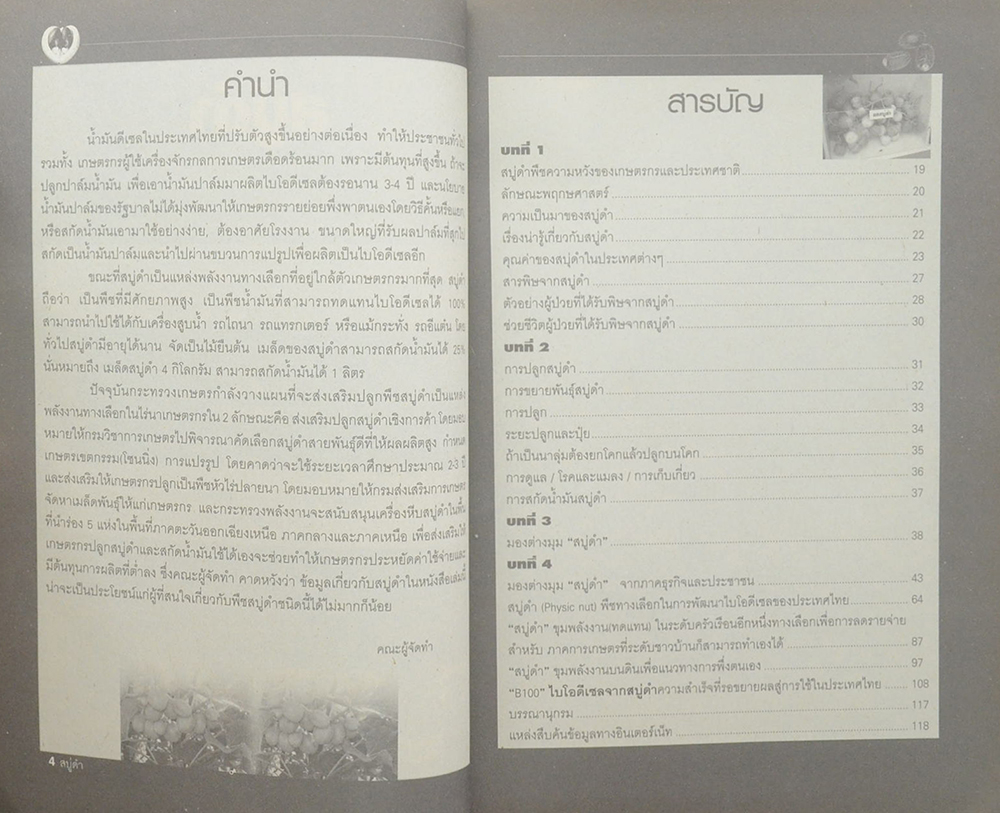 คำนำ
น้ำมันดีเซลในประเทศไทยที่ปรับตัวสูงขึ้นอย่างต่อเนื่อง ทำให้ประชาชนทั่วไป
รวมทั้ง เกษตรกรผู้ใช้เครื่องจักรกลการเกษตรเดือดร้อนมาก เพราะมีต้นทุนที่สูงขึ้น ถ้าจะ
ปลูกปาล์มน้ำมัน เพื่อเอาน้ำมันปาล์มมาผลิตไบโอดีเซลต้องรอนาน 3-4 ปี และนโยบาย
น้ำมันปาล์มของรัฐบาลไม่ได้มุ่งพัฒนาให้เกษตรกรรายย่อยพึ่งพาตนเองโดยวิธีคั้นหรือแยก
หรือสกัดน้ำมันเอามาใช้อย่างง่าย, ต้องอาศัยโรงงาน ขนาดใหญ่ที่รับผลปาล์มที่สุกไป
สกัดเป็นน้ำมันปาล์มและนำไปผ่านขบวนการแปรรูปเพื่อผลิตเป็นไบโอดีเซลอีก
ขณะที่สบู่ดำเป็นแหล่งพลังงานทางเลือกที่อยู่ใกล้ตัวเกษตรกรมากที่สุด สบู่ดำ
ถือว่า เป็นพืชที่มีศักยภาพสูง เป็นพืชน้ำมันที่สามารถทดแทนไบโอดีเซลได้ 100%
สามารถนำไปใช้ได้กับเครื่องสูบน้ำ รถไถนา รถแทรกเตอร์ หรือแม้กระทั่ง รถอีแต๋น โดย
ทั่วไปสบู่ดำมีอายุได้นาน จัดเป็นไม้ยืนต้น เมล็ดของสบู่ดำสามารถสกัดน้ำมันได้ 25%
นั่นหมายถึง เมล็ดสบู่ดำ 4 กิโลกรัม สามารถสกัดน้ำมันได้ 1 ลิตร
ปัจจุบันกระทรวงเกษตรกำลังวางแผนที่จะส่งเสริมปลูกพืชสบู่ดำเป็นแหล่ง
พลังงานทางเลือกในไร่นาเกษตรกรใน 2 ลักษณะคือ ส่งเสริมปลูกสบู่ดำเชิงการค้า โดยมอบ
หมายให้กรมวิชาการเกษตรไปพิจารณาคัดเลือกสบู่ดำสายพันธุ์ดีที่ให้ผลผลิตสูง กำหนด
เกษตรเขตกรรม(โซนนิ่ง) การแปรรูป โดยคาดว่าจะใช้ระยะเวลาศึกษาประมาณ 2-3 ปี
และส่งเสริมให้เกษตรกรปลูกเป็นพืชหัวไร่ปลายนา โดยมอบหมายให้กรมส่งเสริมการเกษตร
จัดหาเมล็ดพันธุ์ให้แก่เกษตรกร และกระทรวงพลังงานจะสนับสนุนเครื่องหีบสบู่ดำในพื้น
ที่นำร่อง 5 แห่งในพื้นที่ภาคตะวันออกเฉียงเหนือ ภาคกลางและภาคเหนือ เพื่อส่งเสริมให้
เกษตรกรปลูกสบู่ดำและสกัดน้ำมันใช้ได้เองจะช่วยทำให้เกษตรกรประหยัดค่าใช้จ่ายและ
มีต้นทุนการผลิตที่ต่ำลง ซึ่งคณะผู้จัดทำ คาดหวังว่า ข้อมูลเกี่ยวกับสบู่ดำในหนังสือเล่มนี้
น่าจะเป็นประโยชน์แก่ผู้ที่สนใจเกี่ยวกับพืชสบู่ดำชนิดนี้ได้ไม่มากก็น้อย
คณะผู้จัดทำ
4 สบู่ดำ
สารบัญ
บทที่ 1
สบู่ดำพืชความหวังของเกษตรกรและประเทศชาติ 19
ลักษณะพฤกษศาสตร์ 20
ความเป็นมาของสบู่ดำ 21
เรื่องน่ารู้เกี่ยวกับสบู่ดำ 22
คุณค่าของสบู่ดำในประเทศต่างๆ 23
สารพิษจากสบู่ดำ 27
ตัวอย่างผู้ป่วยที่ได้รับพิษจากสบู่ดำ 28
ช่วยชีวิตผู้ป่วยที่ได้รับพิษจากสบู่ดำ 30
บทที่ 2
การปลูกสบู่ดำ 31
การขยายพันธุ์สบู่ดำ 32
การปลูก 33
ระยะปลูกและปุ๋ย 34
ถ้าเป็นนาลุ่มต้องยกโคกแล้วปลูกบนโคก 35
การดูแล / โรคและแมลง / การเก็บเกี่ยว 36
การสกัดน้ำมันสบู่ดำ 37
บทที่ 3
มองต่างมุม "สบู่ดำ" 38
บทที่ 4
มองต่างมุม "สบู่ดำ" จากภาคธุรกิจและประชาชน 43
สบู่ดำ (Physic nut) พืชทางเลือกในการพัฒนาไบโอดีเซลของประเทศไทย 64
"สบู่ดำ" ขุมพลังงาน(ทดแทน) ในระดับครัวเรือนอีกหนึ่งทางเลือกเพื่อการลดรายจ่าย
สำหรับ ภาคการเกษตรที่ระดับชาวบ้านก็สามารถทำเองได้ 87
"สบู่ดำ" ขุมพลังงานบนดินเพื่อแนวทางการพึ่งตนเอง 97
"B100" ไบโอดีเซลจากสบู่ดำความสำเร็จที่รอขยายผลสู่การใช้ในประเทศไทย 108
บรรณานุกรม 117
แหล่งสืบค้นข้อมูลทางอินเตอร์เน็ท 118